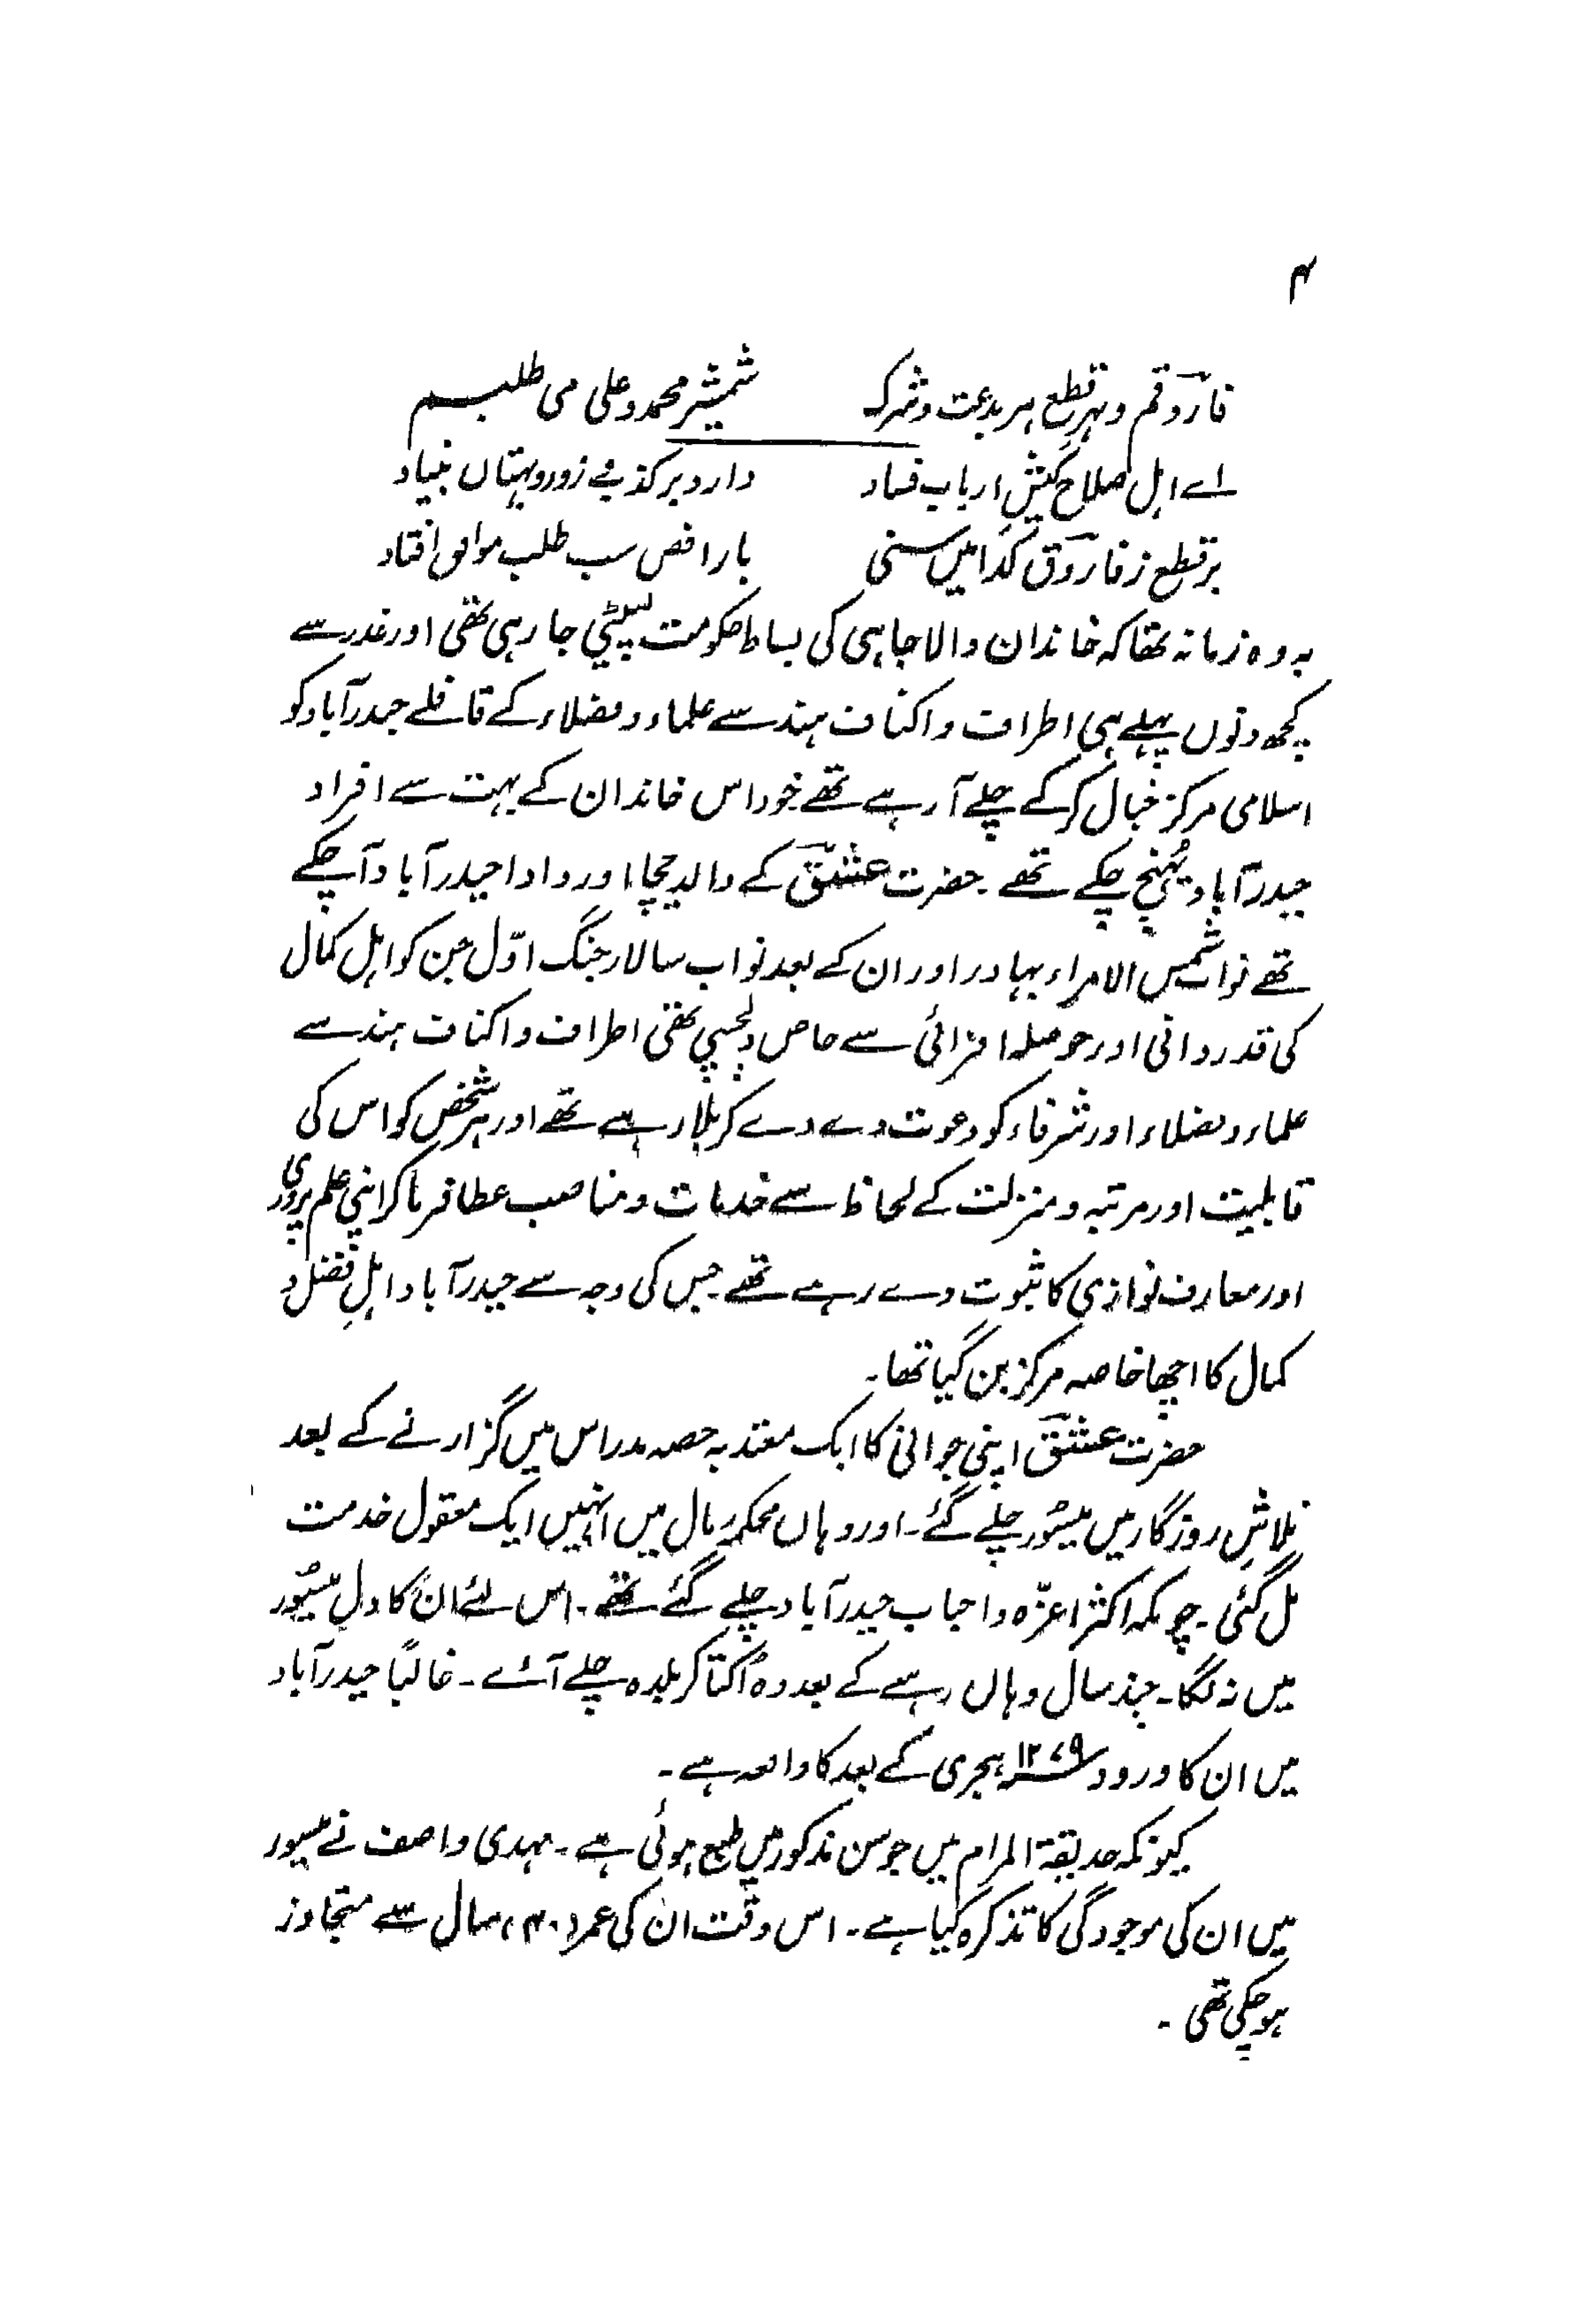 ۴
فاروقم و بہرِ قطع ہر بدعت و شرک شمشیر محمد و علی می طلبم
اے اہل صلاح کیشِ ارباب فساد دارد بر کذب و زور و بہتاں بنیاد
بر قطع ز فاروق کد امیں سنی بارافض سب طلب موافق افتاد
یہ وہ زمانہ تھا کہ خاندان والا جاہی کی بساط حکومت لپیٹی جا رہی تھی اور غدر سے
کچھ دنوں پہلے ہی اطراف و اکناف ہند سے علماء و فضلاء کے قافلے حیدرآباد کو
اسلامی مرکز خیال کر کے چلے آ رہے تھے خود اس خاندان کے بہت سے افراد
حیدرآباد پہُنچ چکے تھے ۔ حضرت عشقؔ کے والد چچا اور دادا حیدرآباد آ چکے
تھے نواب شمس الامراء بہادر اور ان کے بعد نواب سالار جنگ اوّل جن کو اہل کمال
کی قدر دانی اور حوصلہ افزائی سے خاص دلچسپی تھی اطراف و اکناف ہند سے
علماء و فضلاء اور شرفاء کو دعوت دے دے کر بلا رہے تھے اور ہر شخص کو اس کی
قابلیت اور مرتبہ و منزلت کے لحاظ سے خدمات و مناصب عطا فرما کر اپنی علم پروری
اور معارف نوازی کا ثبوت دے رہے تھے ۔ جس کی وجہ سے حیدرآباد اہلِ فضل و
کمال کا اچھا خاصہ مرکز بن گیا تھا ۔
حضرت عشقؔ اپنی جوانی کا ایک معتد بہ حصہ مدراس میں گزارنے کے بعد
تلاشِ روزگار میں میسُور چلے گئے ۔ اور وہاں محکمہ مال میں انہیں ایک معقول خدمت
مل گئی ۔ چونکہ اکثر اعزّہ و احباب حیدرآباد چلے گئے تھے ۔ اس لئے ان کا دل میسُور
میں نہ لگا ۔ چند سال وہاں رہنے کے بعد وہ اُکتا کر بلدہ چلے آئے ۔ غالباً حیدرآباد
میں ان کا ورود ۱۲۷۹؁ ہجری کے بعد کا واقعہ ہے ۔
کیونکہ حدیقۃ المرام میں جو سن مذکور میں طبع ہوئی ہے ۔ مہدی واصف نے میسور
میں ان کی موجودگی کا تذکرہ کیا ہے ۔ اس وقت ان کی عمر (۴۰) سال سے متجاوز
ہو چکی تھی ۔